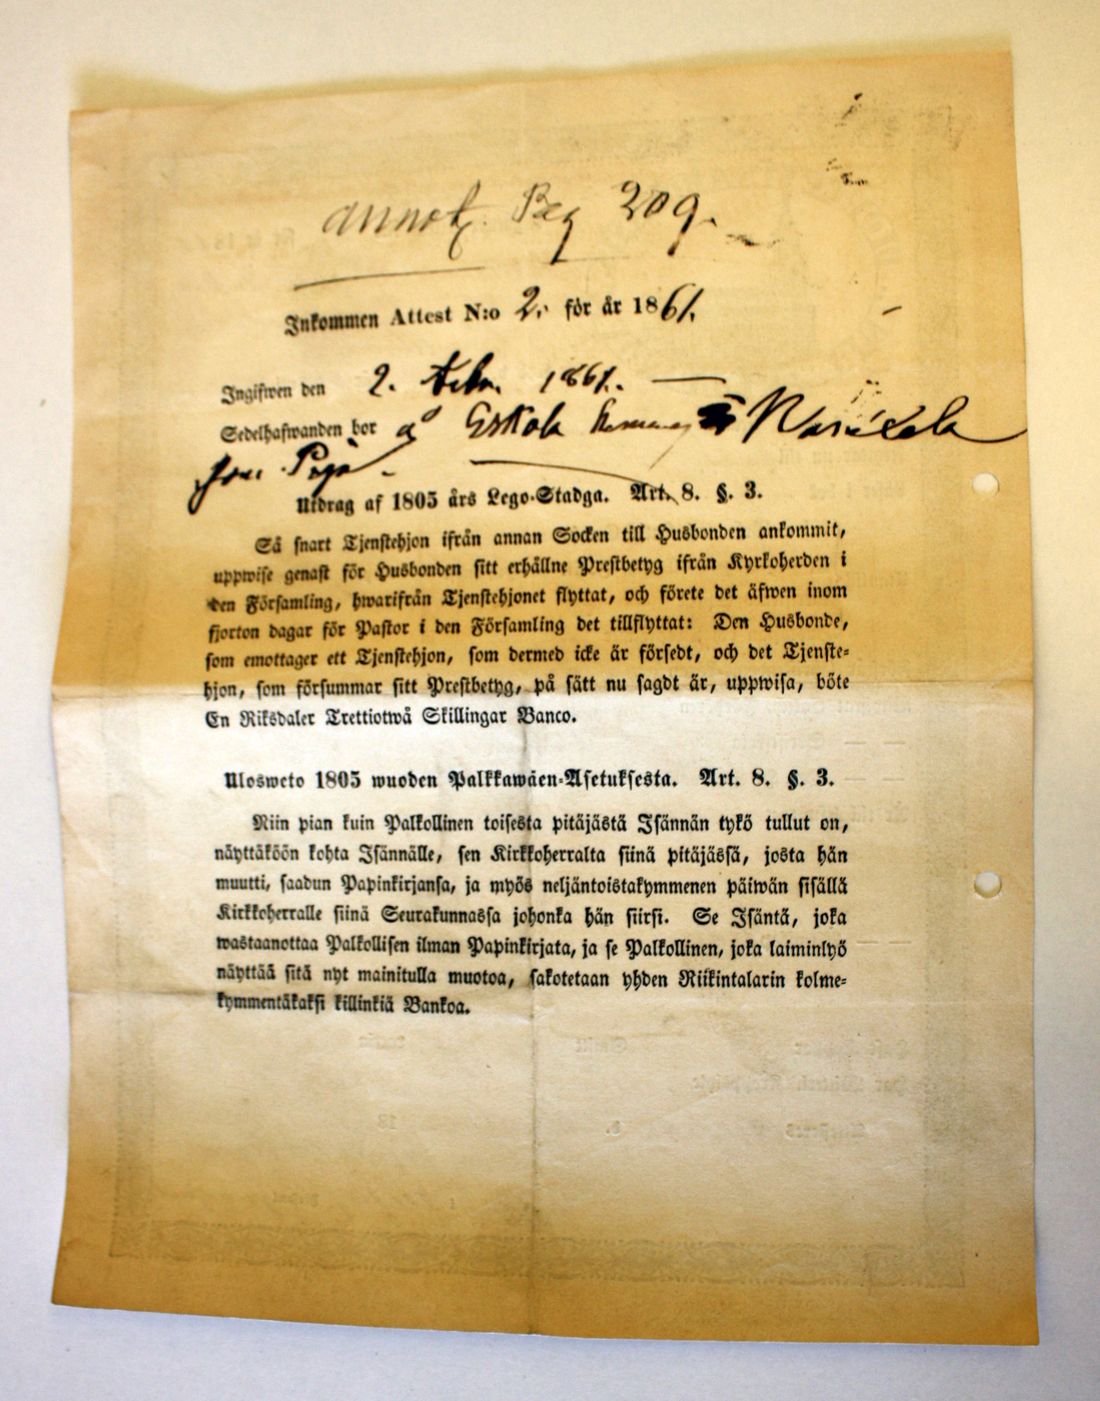 annot. Pag 209.
Inkommen Attest N:o 2. för år 1861.
Ingifwen den 2. Febr. 1861.
Sedelhafwanden bor å Eskola
som Piga
Utdrag af 1805 års Lego-Stadga. Art. 8. §. 3.
Så snart Tjenstehjon ifrån annan Socken till Husbonden ankommit,
uppwise genast för Husbonden sitt erhållne Prestbetyg ifrån Kyrkoherden i
den Församling, hwarifrån Tjenstehjonet flyttat, och förete det äfwen inom
fjorton dagar för Pastor i den Församling det tillflyttat: Den Husbonde,
som emottager ett Tjenstehjon, som dermed icke är försedt, och det Tjenste-
hjon, som försummar sitt Prestbetyg, på sätt nu sagdt är, uppwisa, böte
En Riksdaler Trettiotwå Skillingar Banco.
Ulosweto 1805 wuoden Palkkawäen-Asetuksesta. Art. 8. §. 3.
Niin pian kuin Palkollinen toisesta pitäjästä Isännän tykö tullut on,
näyttäköön kohta Isännälle, sen Kirkkoherralta siinä pitäjässä, josta hän
muutti, saadun Papinkirjansa, ja myös neljäntoistakymmenen päiwän sisällä
Kirkkoherralle siinä Seurakunnassa johonka hän siirsi. Se Isäntä, joka
wastaanottaa Palkollisen ilman Papinkirjata, ja se Palkollinen, joka laiminlyö
näyttää sitä nyt mainitulla muotoa, sakotetaan yhden Riikintalarin kolme-
kymmentäkaksi killinkiä Bankoa.